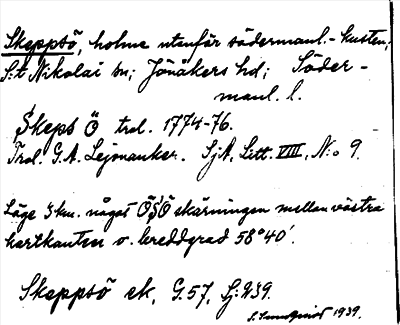 Skeppsö, holme utanför södermanl.-kusten,
S:t Nikolai sn; Jönåkers hd; Söder-
manl. l.
Skeps Ö trol. 1774-76.
Trol. G.A. Lejonanker. SjA, Litt. VIII, No 9.
Läge 3 km. något ÖSÖ skärningen mellan västra
kartkanten o. breddgrad 58°40'.
Skeppsö ek, G.57, Sj:239.
1939.